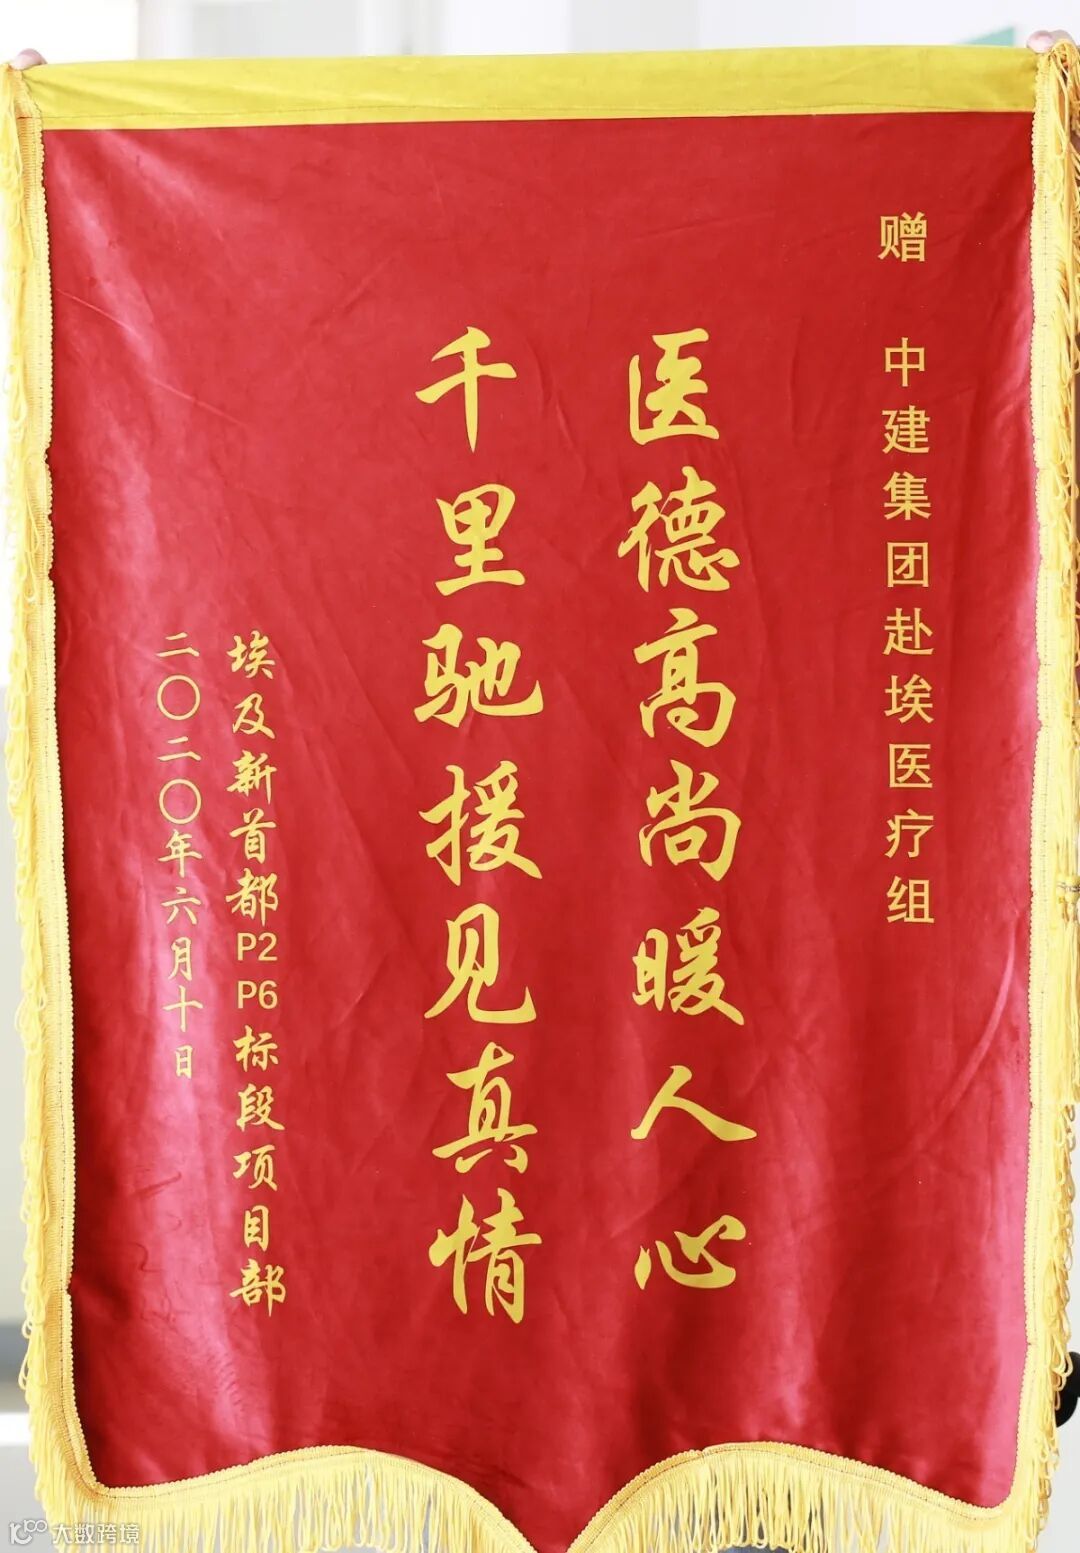 赠 中建集团赴埃医疗组
医德高尚暖人心
千里驰援见真情
埃及新首都P2P6标段项目部
二〇二〇年六月十日
大数跨境